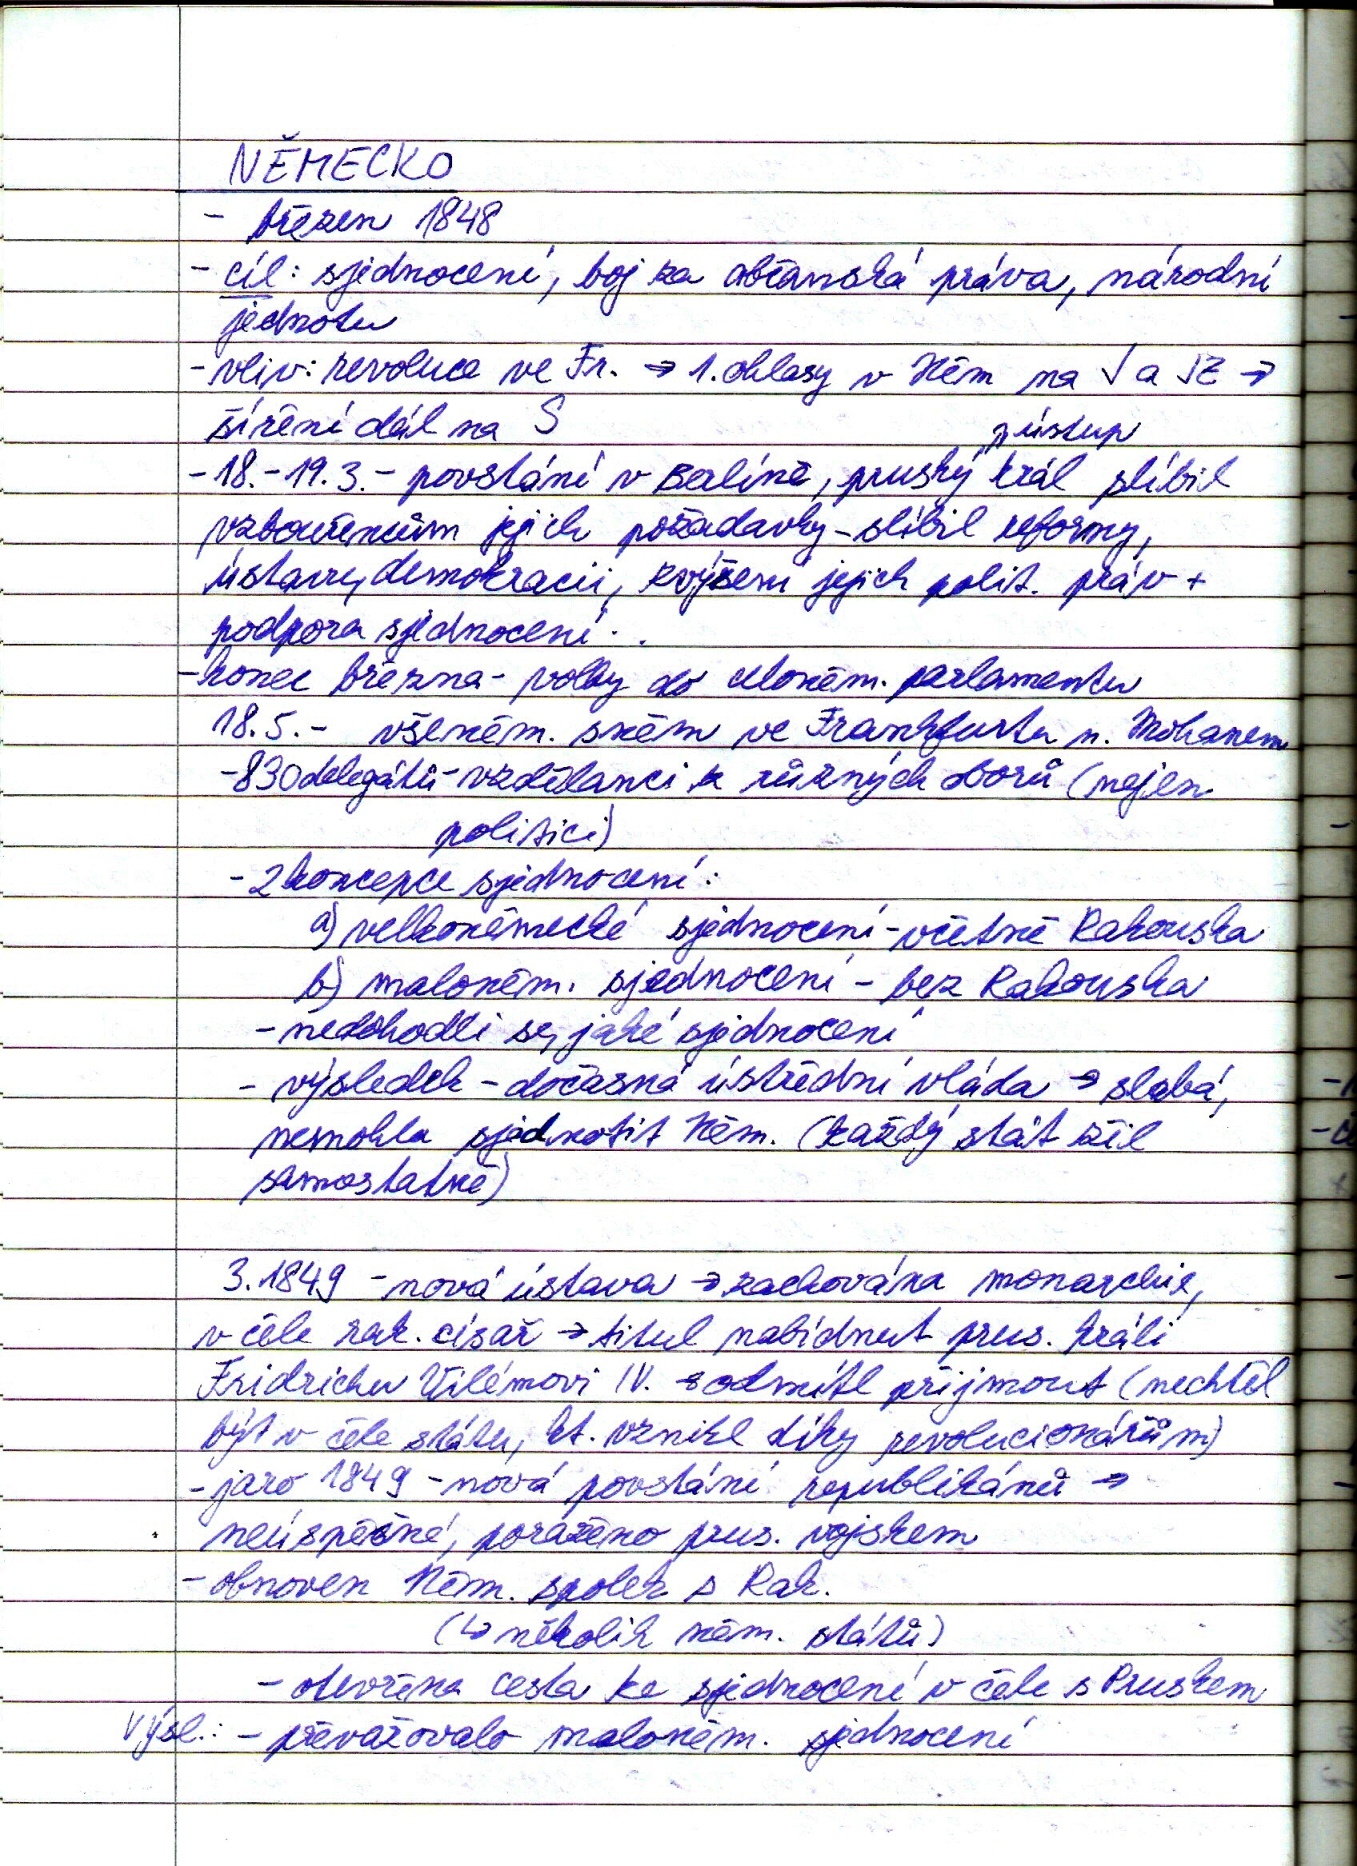 NĚMECKO
- březen 1848
- cíl: sjednocení, boj za občanská práva, národní
jednotu
- vliv: revoluce ve Fr. → 1. ohlasy v Něm na J a JZ →
šíření dál na S
ústup
- 18.-19.3. - povstání v Berlíně, pruský král slíbil
vzbouřencům jejich požadavky - slíbil reformy,
ústavu, demokracii, zvýšení jejich polit. práv +
podpora sjednocení.
- konec března - volby do celoněm. parlamentu
18.5. - všeněm. sněm ve Frankfurtu n. Mohanem
- 830 delegátů - vzdělanci z různých oborů (nejen
politici)
- 2 koncepce sjednocení:
a) velkoněmecké sjednocení - včetně Rakouska
b) maloněm. sjednocení - bez Rakouska
- nedohodli se, jaké sjednocení
- výsledek - dočasná ústřední vláda → slabá,
nemohla sjednotit Něm. (každý stát žil
samostatně)
3.1849 - nová ústava → zachována monarchie,
v čele rak. císař → titul nabídnut prus. králi
Fridrichu Vilémovi IV. → odmítl přijmout (nechtěl
být v čele státu, kt. vznikl díky revolucionářům)
- jaro 1849 - nová povstání republikánů →
neúspěšné, poraženo prus. vojskem
- obnoven Něm. spolek s Rak.
(↳ několik něm. států)
- otevřena cesta ke sjednocení v čele s Pruskem
Výsl.: - převažovalo maloněm. sjednocení